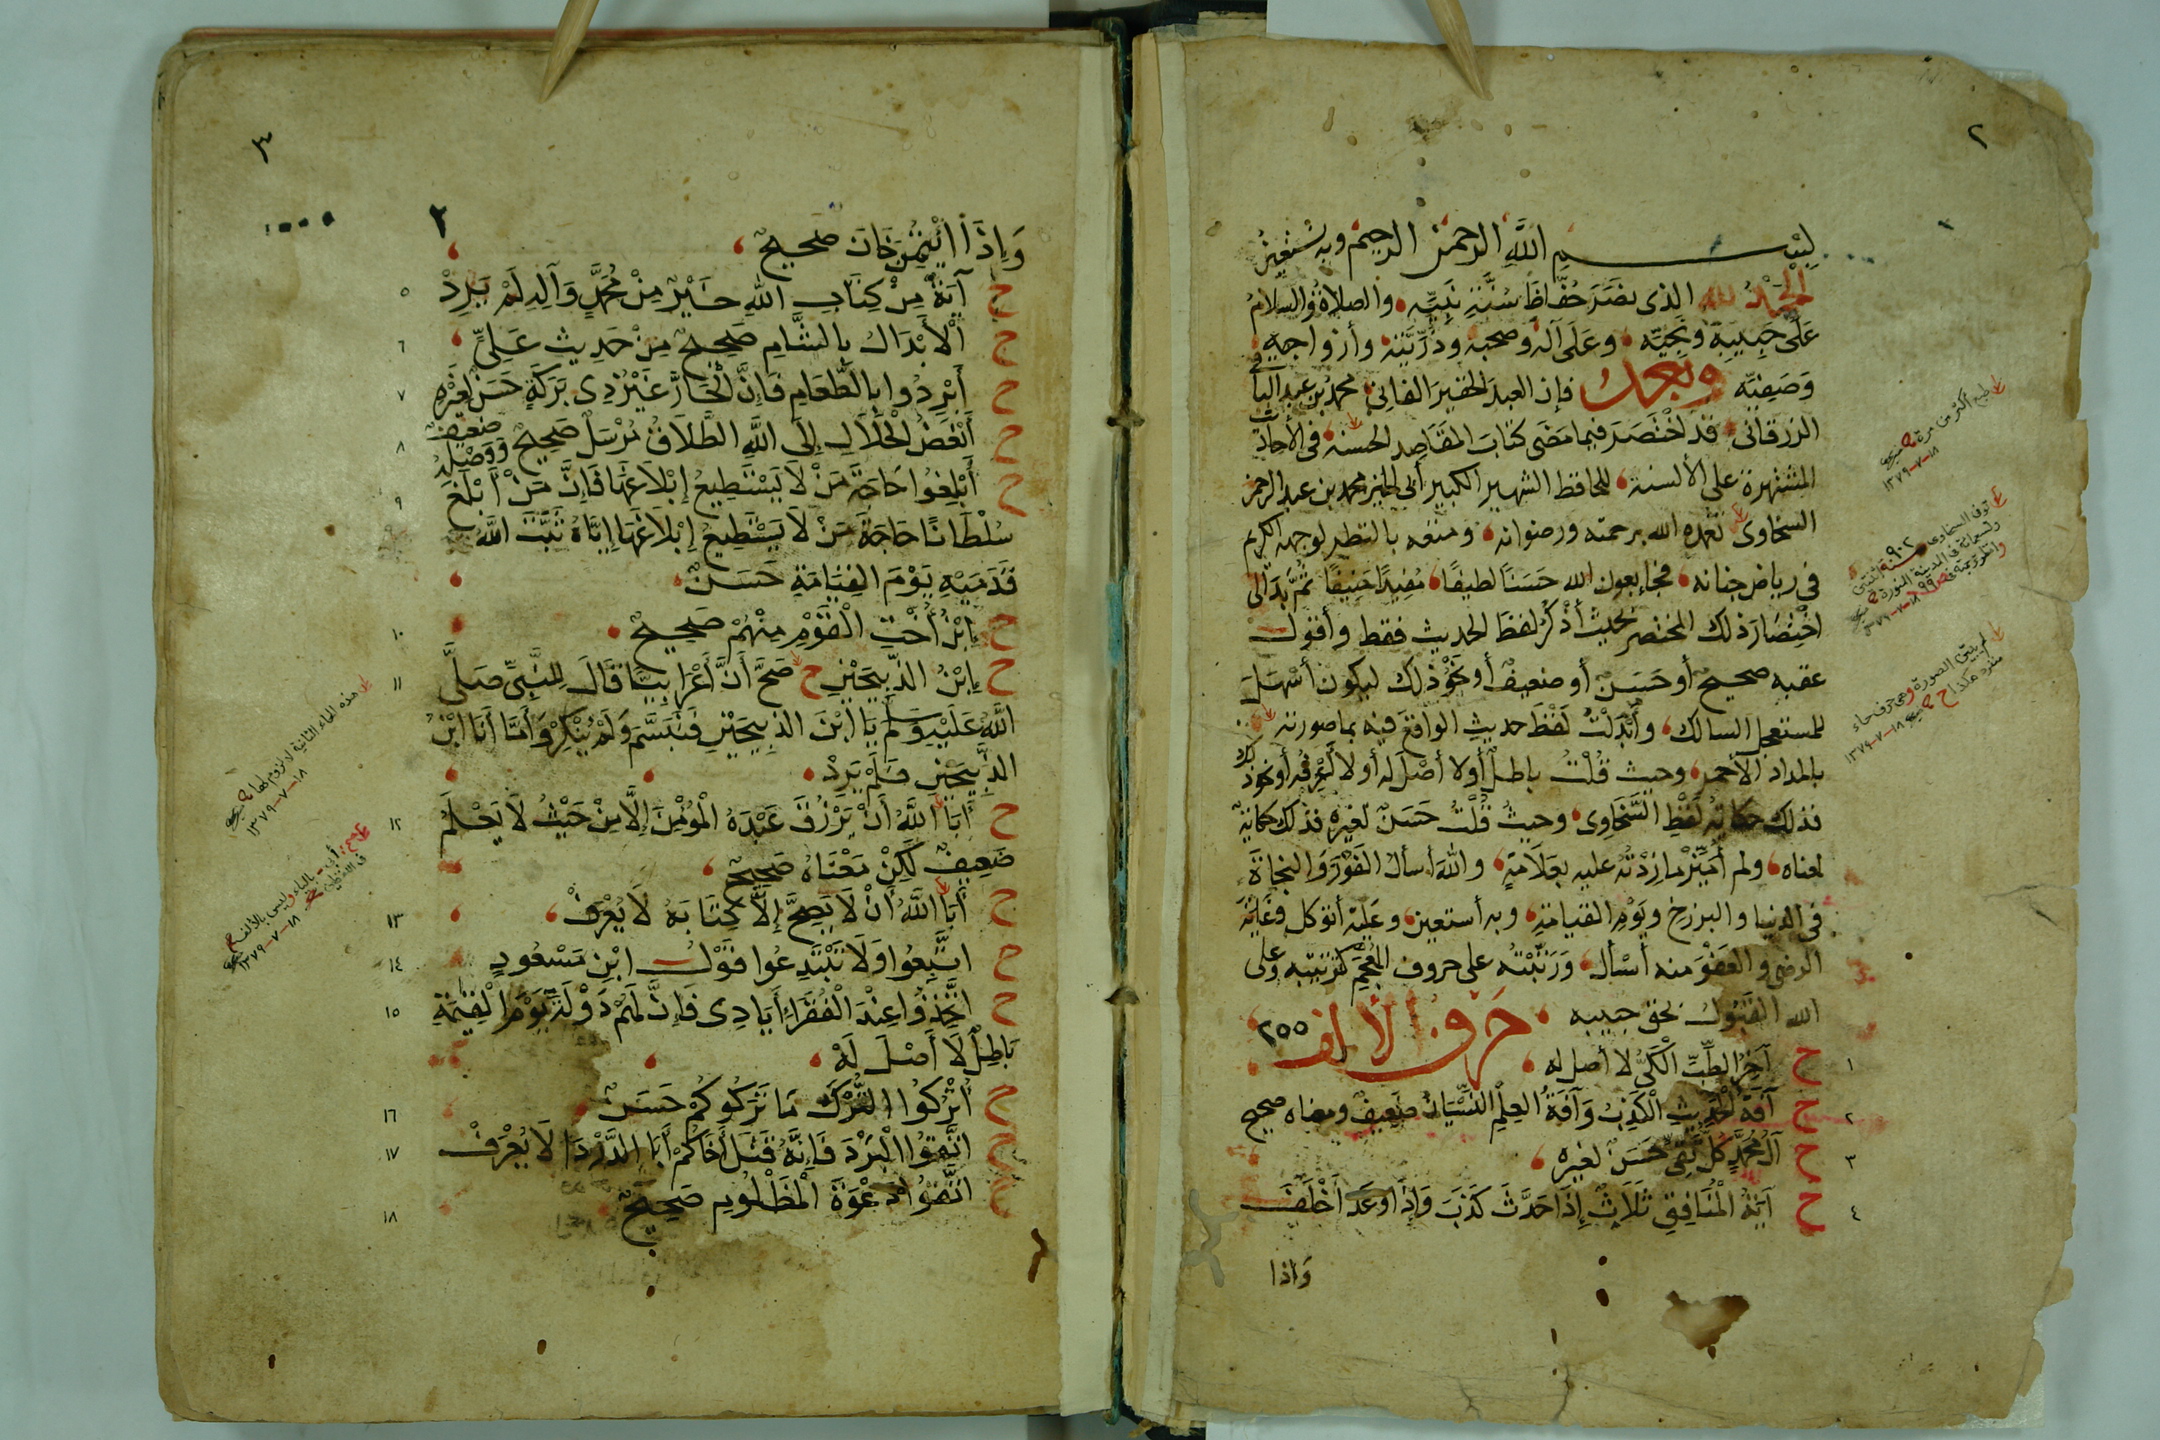 ٢
بسم الله الرحمن الرحيم وبه نستعين
الحمد لله الذى نضر حفاظ سنة نبيه والصلاة والسلام
على حبيبه ونجيه وعلى آله وصحبه وذريته وأزواجه
وصفيه وبعد فإن العبد الحقير الفانى محمد بن عبد الباقى
الزرقانى قد اختصر فيما مضى كتاب المقاصد الحسنة فى الأحاديث
المشتهرة على الألسنة للحافظ الشهير الكبير أبى الخير محمد بن عبد الرحمن
السخاوى تغمده الله برحمته ورضوانه ومتعه بالنظر لوجهه الكريم
فى رياض جنانه فجاء بعون الله حسنا لطيفا مفيدا منيفا ثم بدا لى
اختصار ذلك المختصر بحيث أذكر لفظ الحديث فقط وأقول
عقبه صحيح أو حسن أو ضعيف أو نحو ذلك ليكون أسهل
للمستعجل السالك وأبدلت لفظ حديث الواقع فيه بما صورته
بالمداد الأحمر وحيث قلت باطل أو لا أصل له أو لا أعرفه أو نحو ذلك
فذلك حكاية لفظ السخاوى وحيث قلت حسن لغيره فذلك حكاية
لمعناه ولم أميز ما زدته عليه بعلامة والله أسأل الفوز والنجاة
فى الدنيا والبرزخ ويوم القيامة وبه أستعين وعليه أتوكل وغاية
الرضى والعفو منه أسأل ورتبته على حروف المعجم كترتيبه وعلى
الله القبول بحق حبيبه حرف الألف ٢٥٥
١ ح آخر الطب الكى لا أصل له
٢ ح آفة الحديث الكذب وآفة العلم النسيان ضعيف ومعناه صحيح
٣ ح آل محمد كل تقى حسن لغيره
٤ ح آية المنافق ثلاث إذا حدث كذب وإذا وعد أخلف
وإذا
طبع أكثر من مرة
١٨-٧-١٣٧٩
توفى السخاوى سنة ٩٠٢
١٨-٧-١٣٧٩
لم يبق الصورة وهى حرف حاء
مفرد هكذا ح
١٨-٧-١٣٧٩
٣
٢
وإذا ائتمن خان صحيح
٥ ح آية من كتاب الله خير من محمد وآله لم يرد
٦ ح الأبدال بالشام صحيح من حديث على
٧ ح أبردوا بالطعام فإن الحار غير ذى بركة حسن لغيره
٨ ح أبغض الحلال إلى الله الطلاق مرسل صحيح ووصله ضعيف
٩ ح أبلغوا حاجة من لا يستطيع إبلاغها فإن من أبلغ
سلطانا حاجة من لا يستطيع إبلاغها إياه ثبت الله
قدميه يوم القيامة حسن
١٠ ح إبن أخت القوم منهم صحيح
١١ ح إبن الذبيحين ح صح أن أعرابيا قال للنبى صلى
الله عليه وسلم يا ابن الذبيحين فتبسم ولم ينكر وأما أنا ابن
الذبيحين فلم يرد
١٢ ح أبا الله أن يرزق عبده المؤمن إلا من حيث لا يعلم
ضعيف لكن معناه صحيح
١٣ ح أبا الله أن لا يصح إلا كتابه لا يعرف
١٤ ح اتبعوا ولا تبتدعوا قول ابن مسعود
١٥ ح اتخذوا عند الفقراء أيادى فإن لهم دولة يوم القيمة
باطل لا أصل له
١٦ ح اتركوا الترك ما تركوكم حسن
١٧ ح اتقوا البرد فإنه قتل أخاكم أبا الدردا لا يعرف
١٨ ح اتقوا دعوة المظلوم صحيح
هذه الحاء الثانية لا لزوم لها
١٨-٧-١٣٧٩
أبى بالياء وليس بالألف
١٨-٧-١٣٧٩